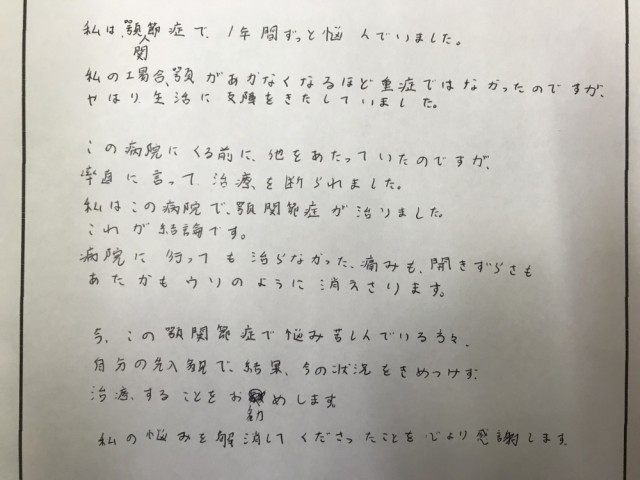 私は、顎関節症で、1年間ずっと悩んでいました。
私の場合、顎があかなくなるほど重症ではなかったのですが、
やはり、生活に支障をきたしていました。
この病院にくる前に、他をあたっていたのですが、
率直に言って、治療を断られました。
私はこの病院で、顎関節症が治りました。
これが結論です。
病院に行っても治らなかった、痛みも、開きずらさも
あたかもウソのように消えさります。
今、この顎関節症で悩み苦しんでいる方々、
自分の先入観で、結果、今の状況をきめつけず、
治療、することをお勧めします。
私の悩みを解消してくださったことを心より感謝します。